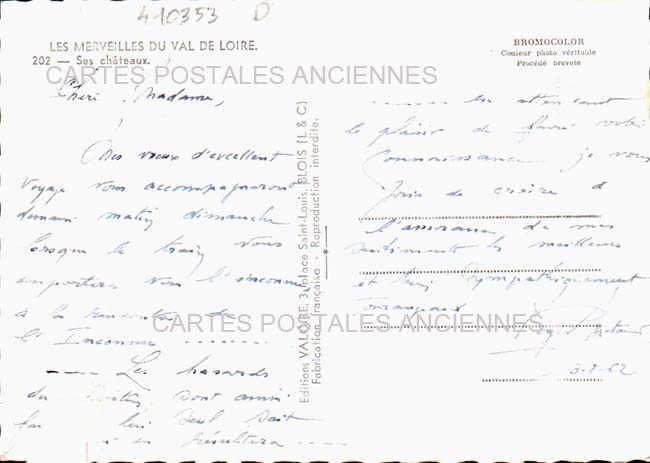 410353 D
LES MERVEILLES DU VAL DE LOIRE.
202 — Ses châteaux.
CARTES POSTALES ANCIENNES
Madame,
Mes vœux d'excellent
voyage vous accompagneront
demain matin dimanche
lorsque le train vous
emportera vers l'inconnu
à la rencontre de
l'Inconnu - - - - - - -
- - - - Les hasards
du destin sont ainsi
lui seul sait
en résultera - - - -
Editions VALOIRE, 3, place Saint-Louis, BLOIS (L & C)
Fabrication française - Reproduction interdite.
BROMOCOLOR
Couleur photo véritable
Procédé breveté
- - - - - - en attendant
le plaisir de faire votre
connaissance, je vous
prie de croire à
l'assurance de mes
sentiments les meilleurs
et bien sympathiquement
CARTES POSTALES ANCIENNES
3-8-62